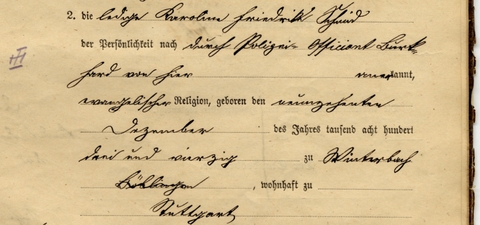 2. die ledige Karoline Friedrike Schmid
der Persönlichkeit nach durch Polizei-Officiant Burk-
hard von hier anerkannt,
evangelischer Religion, geboren den neunzehnten
Dezember des Jahres tausend acht hundert
drei und vierzig zu Winterbach
, wohnhaft zu
Stuttgart